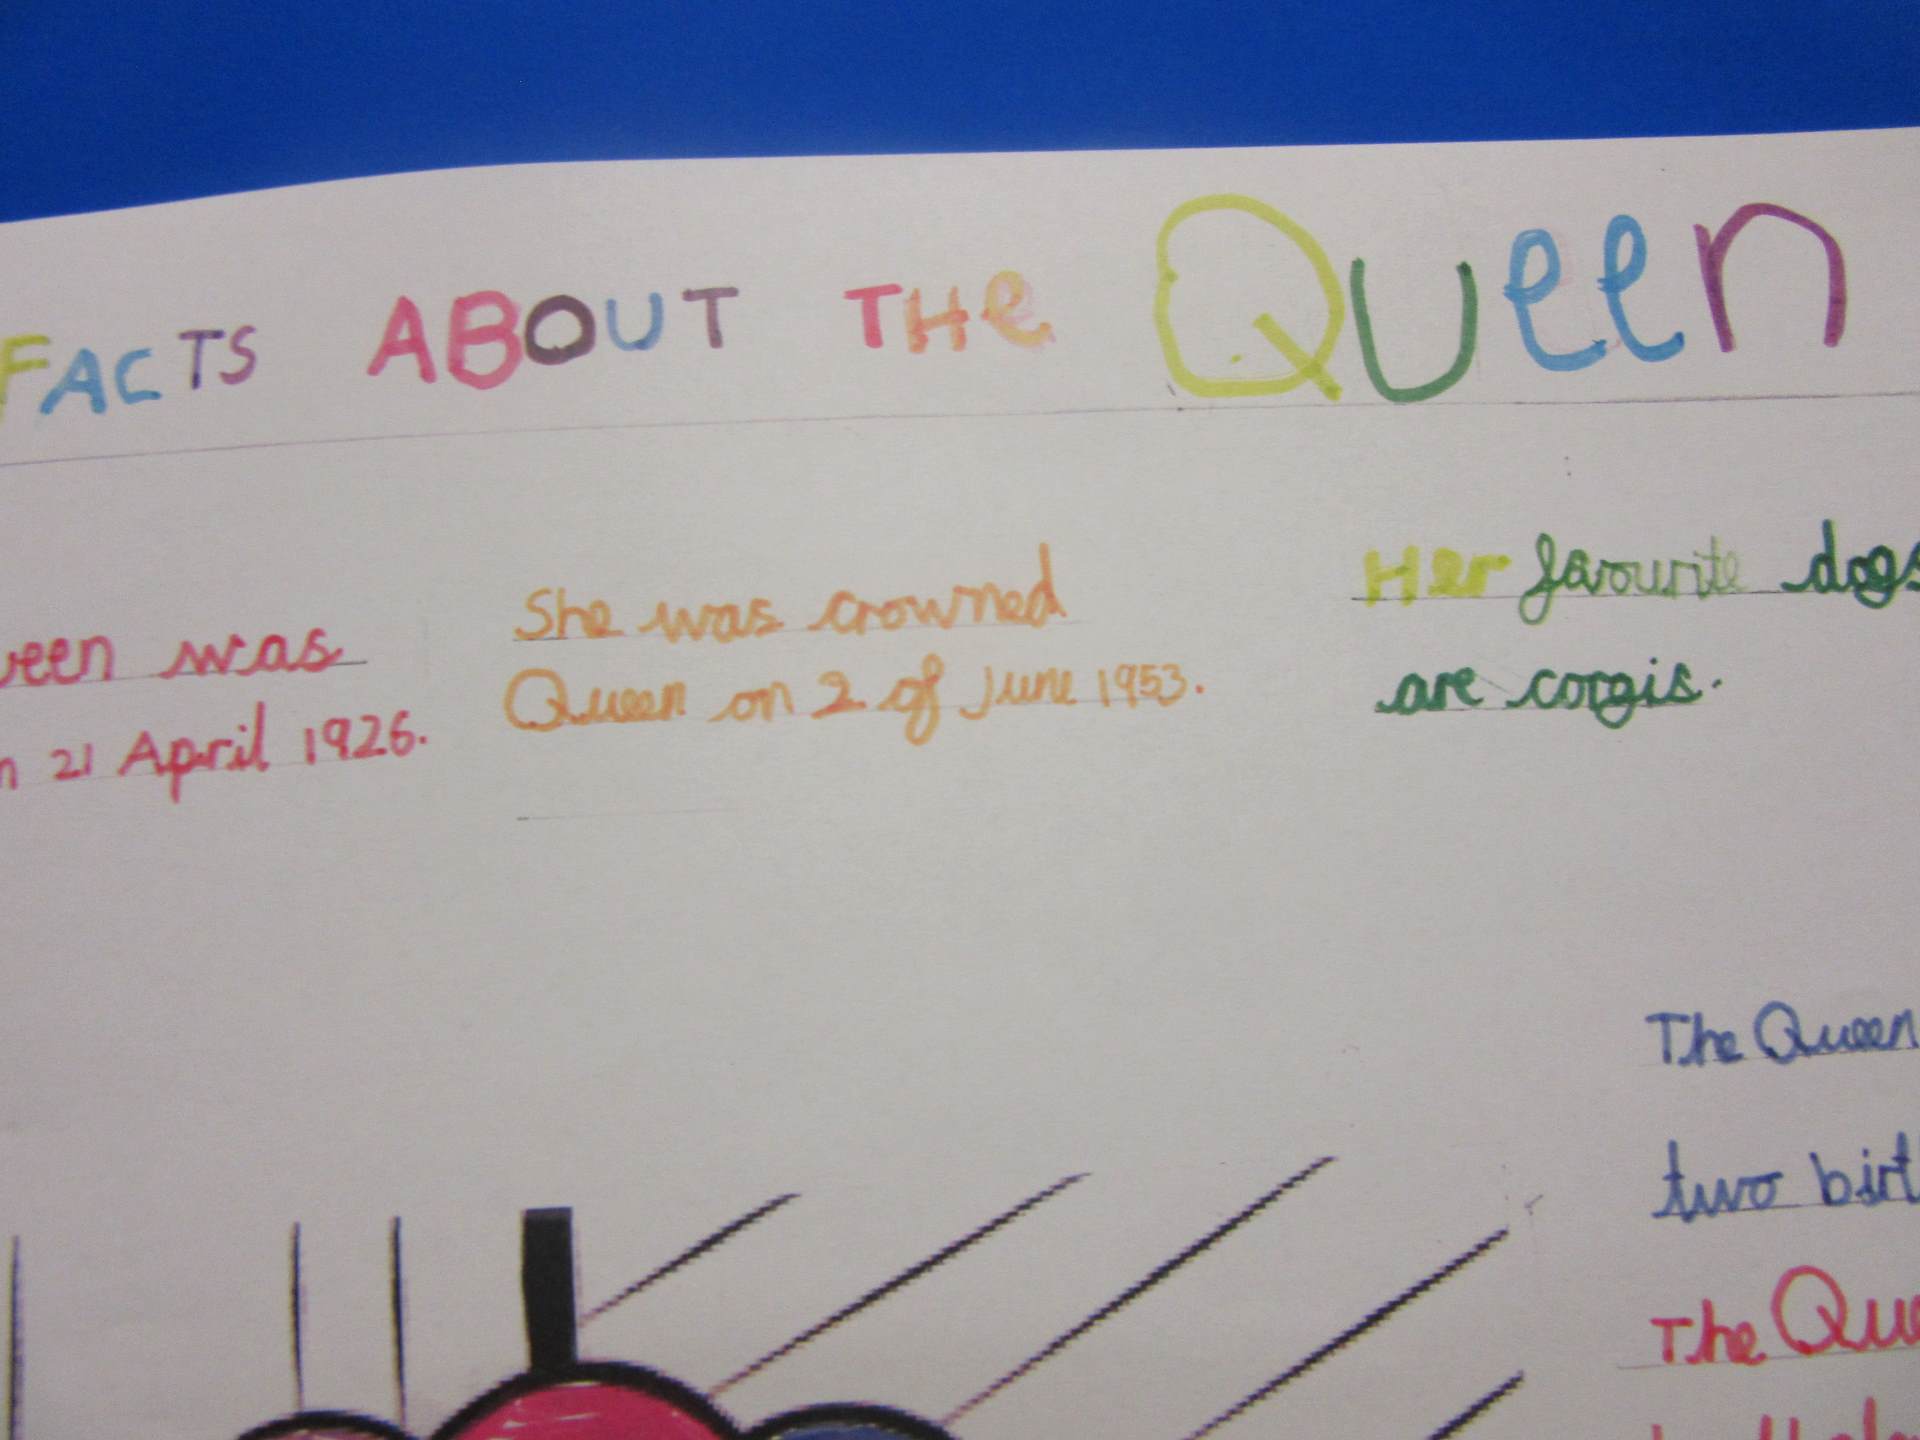 FACTS ABOUT THE Queen
ueen was
n 21 April 1926.
She was crowned
Queen on 2 of June 1953.
Her favourite dogs
are corgis.
The Queen
two birt
The Que